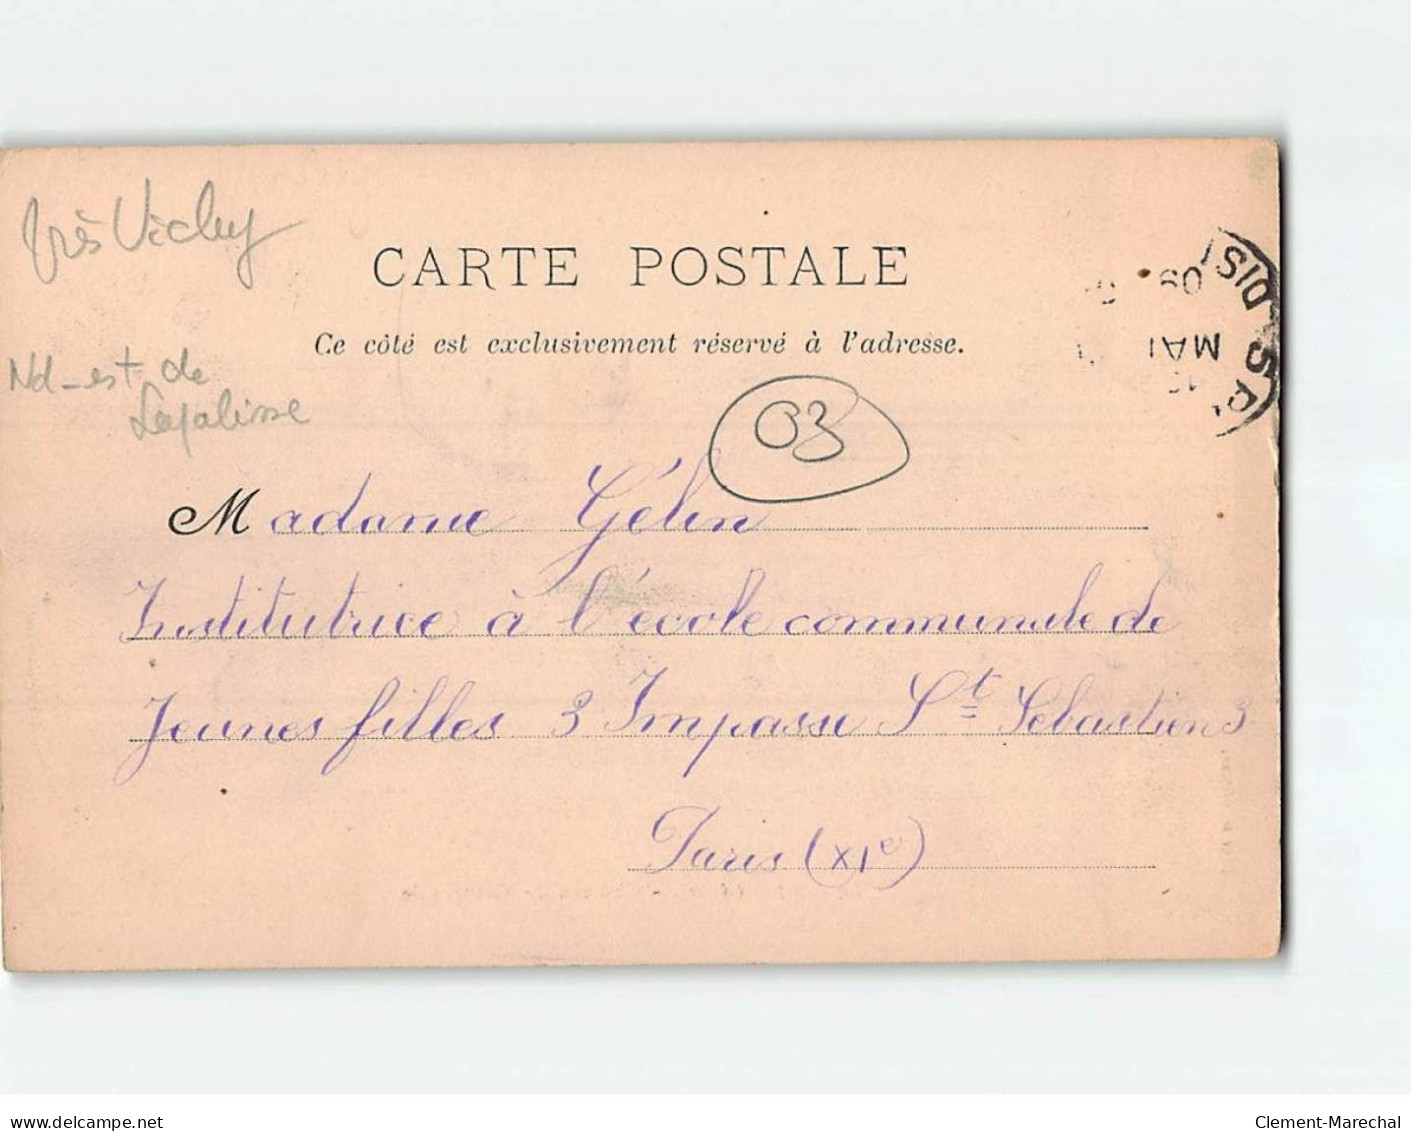 près Vichy
CARTE POSTALE
Ce côté est exclusivement réservé à l'adresse.
Nd-est de
Lapalisse
03
Madame Gélin
Institutrice à l'école communale de
Jeunes filles 3 Impasse St Sébastien 3
Paris (XIe)
DIS
09
MAI
www.delcampe.net
Clement-Marechal